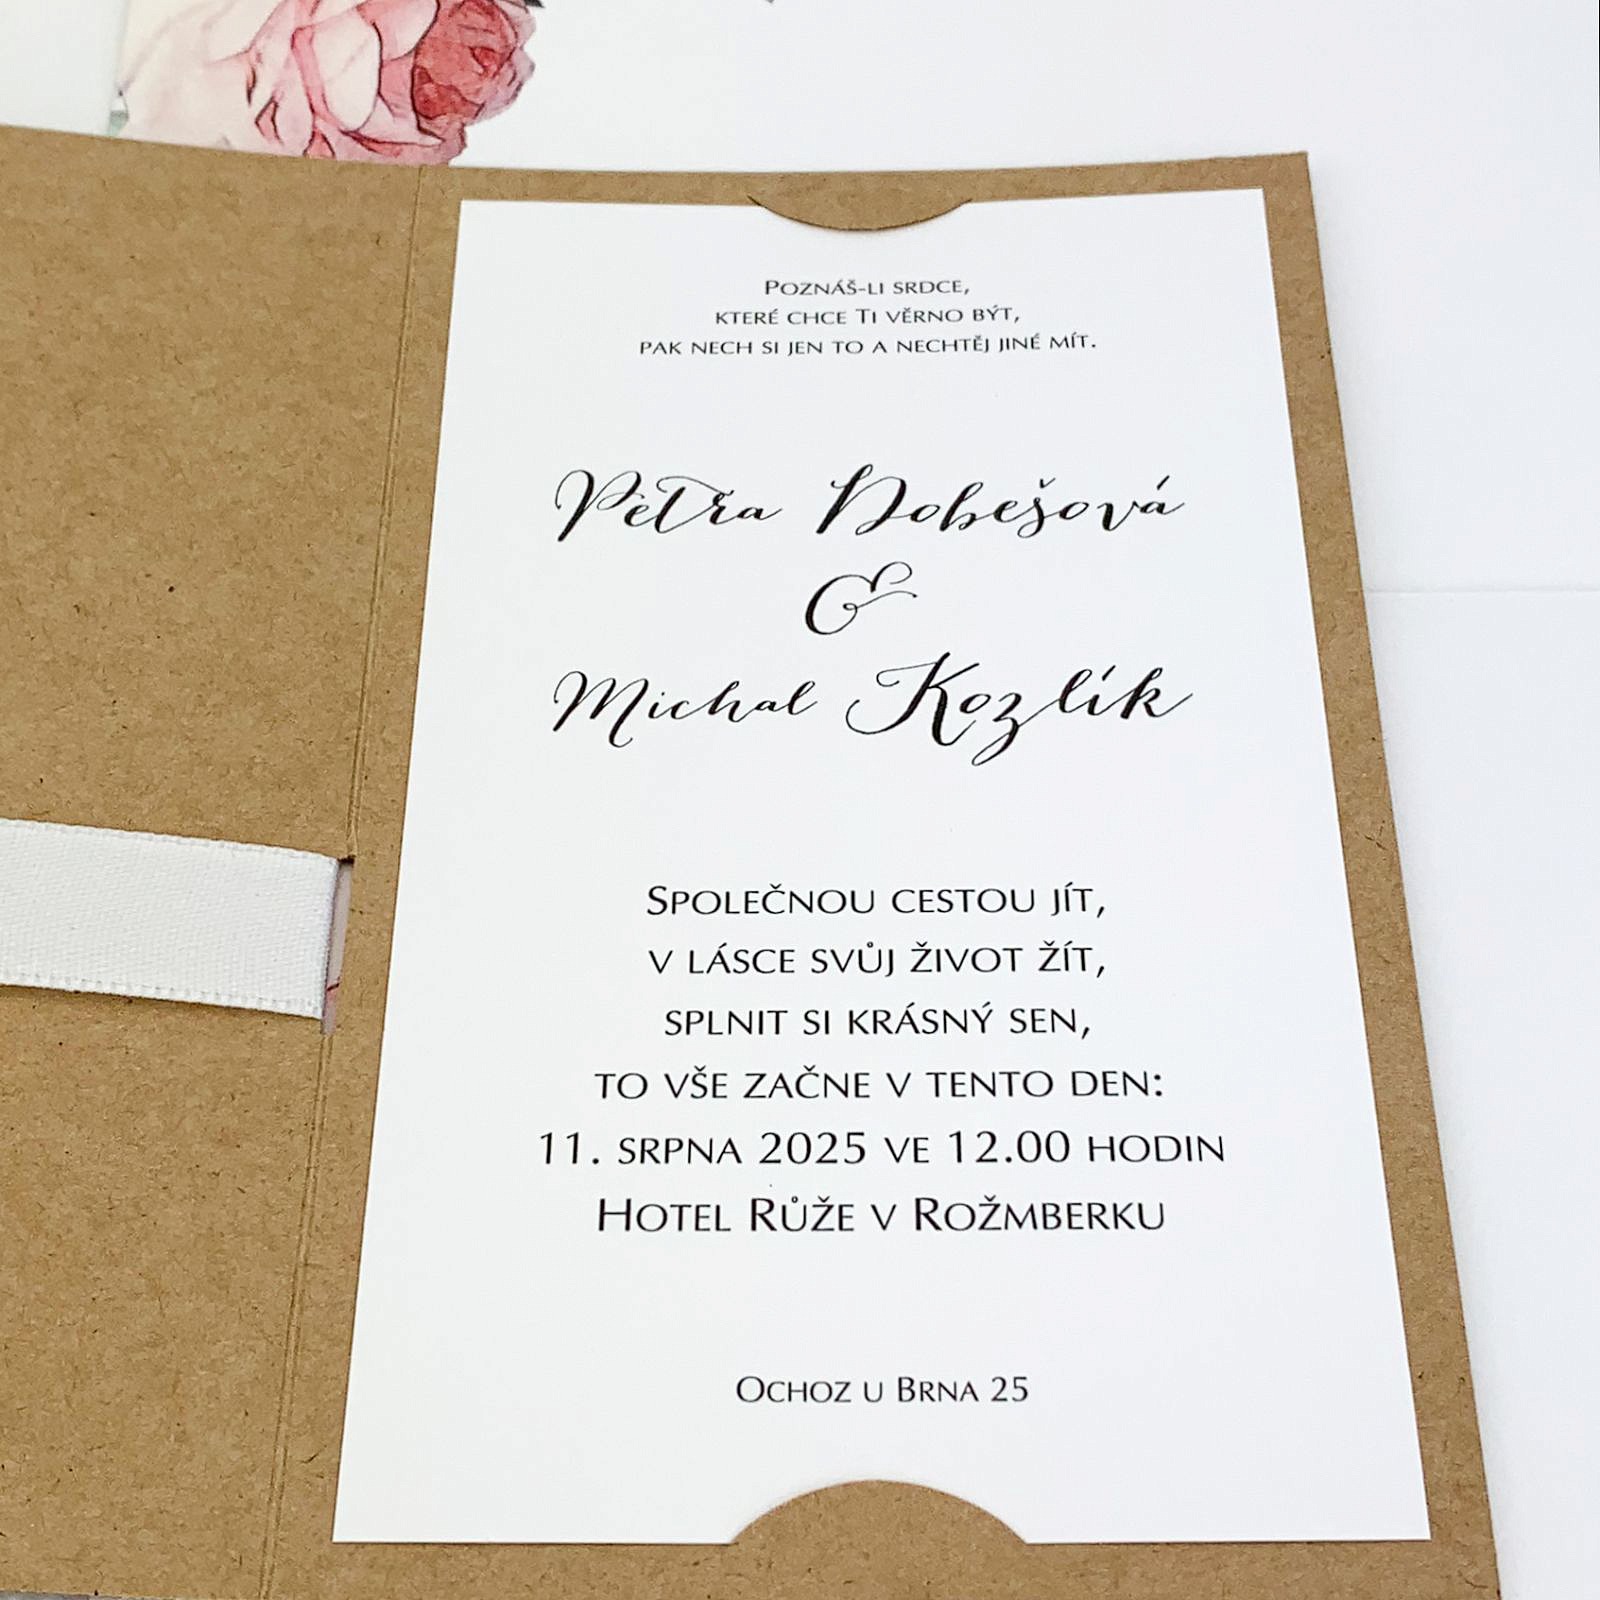 Poznáš-li srdce,
které chce Ti věrno být,
pak nech si jen to a nechtěj jiné mít.
Petra Dobešová
&
Michal Kozlík
Společnou cestou jít,
v lásce svůj život žít,
splnit si krásný sen,
to vše začne v tento den:
11. srpna 2025 ve 12.00 hodin
Hotel Růže v Rožmberku
Ochoz u Brna 25